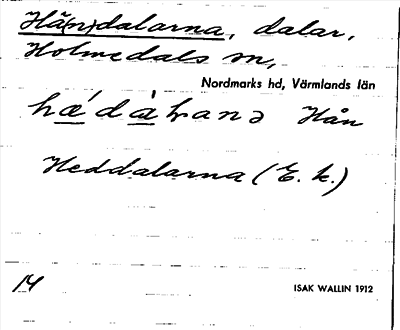 Hå(n)dalarna, dalar,
Holmedals sn,
Nordmarks hd, Värmlands län
hǽdàɫɑnə Hån
Heddalarna (E. k.)
14
ISAK WALLIN 1912